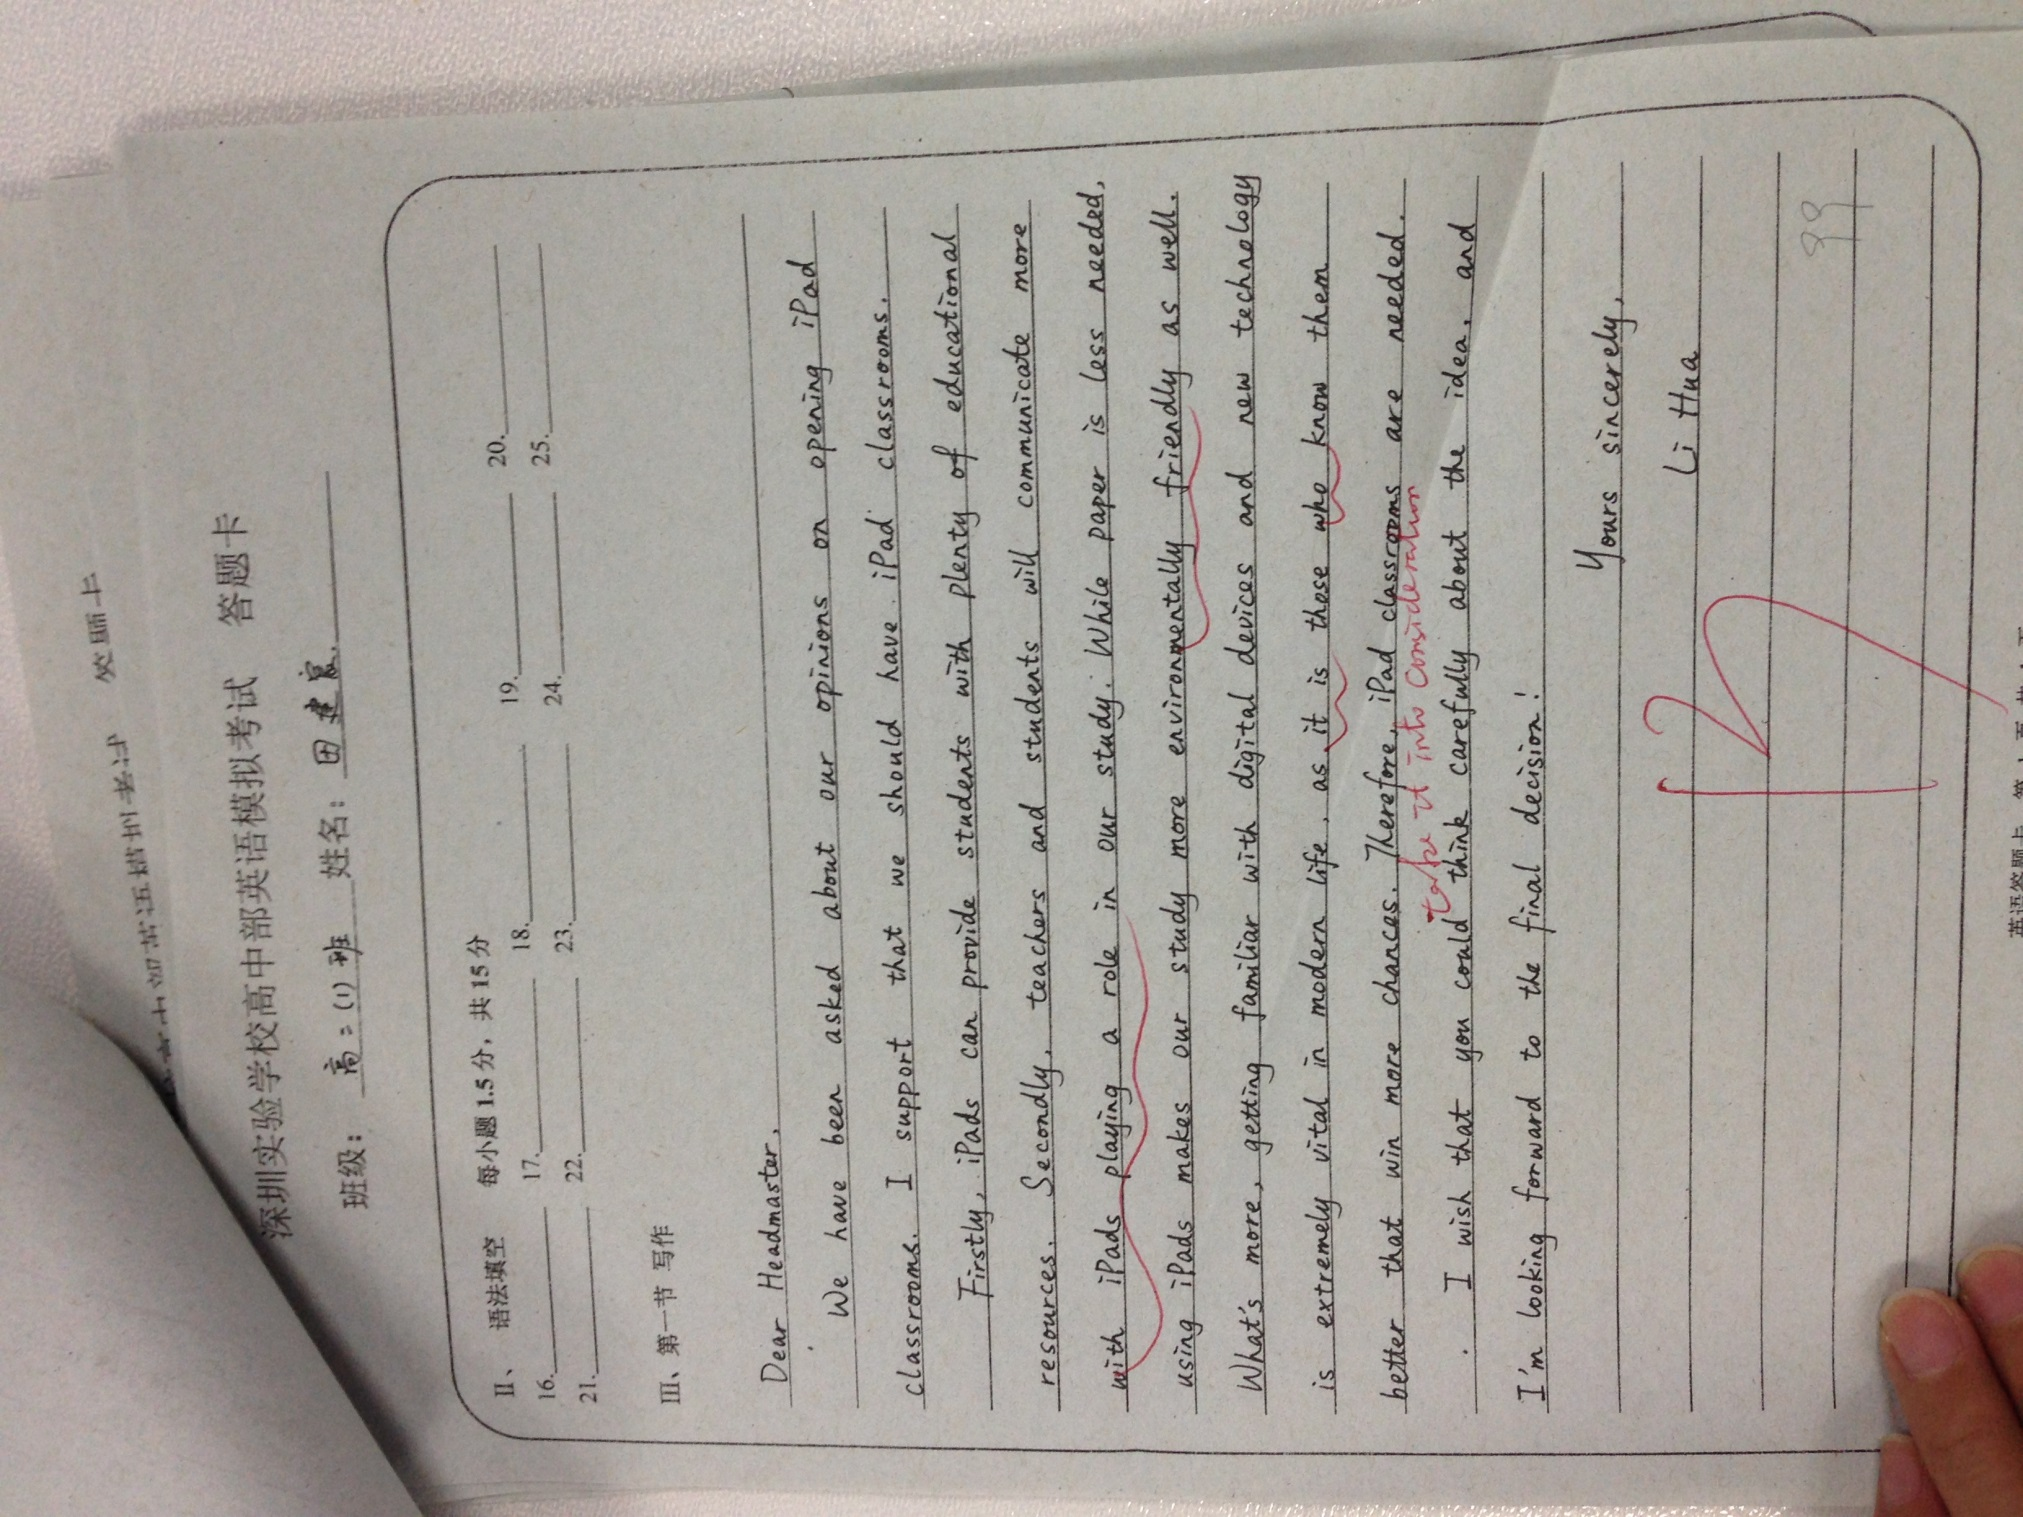 答题卡
深圳实验学校高中部英语模拟考试 答题卡
班级: 高二(1)班 姓名: 田
II、 语法填空 每小题 1.5 分，共 15 分
16. 17. 18. 19. 20.
21. 22. 23. 24. 25.
III、第一节 写作
Dear Headmaster,
We have been asked about our opinions on opening iPad
classrooms. I support that we should have iPad classrooms.
Firstly, iPads can provide students with plenty of educational
resources. Secondly, teachers and students will communicate more
with iPads playing a role in our study. While paper is less needed,
using iPads makes our study more environmentally friendly as well.
What's more, getting familiar with digital devices and new technology
is extremely vital in modern life, as it is those who know them
better that win more chances. Therefore, iPad classrooms are needed.
take it into consideration
I wish that you could think carefully about the idea, and
I'm looking forward to the final decision!
Yours sincerely,
Li Hua
英语答题卡 第 1 页